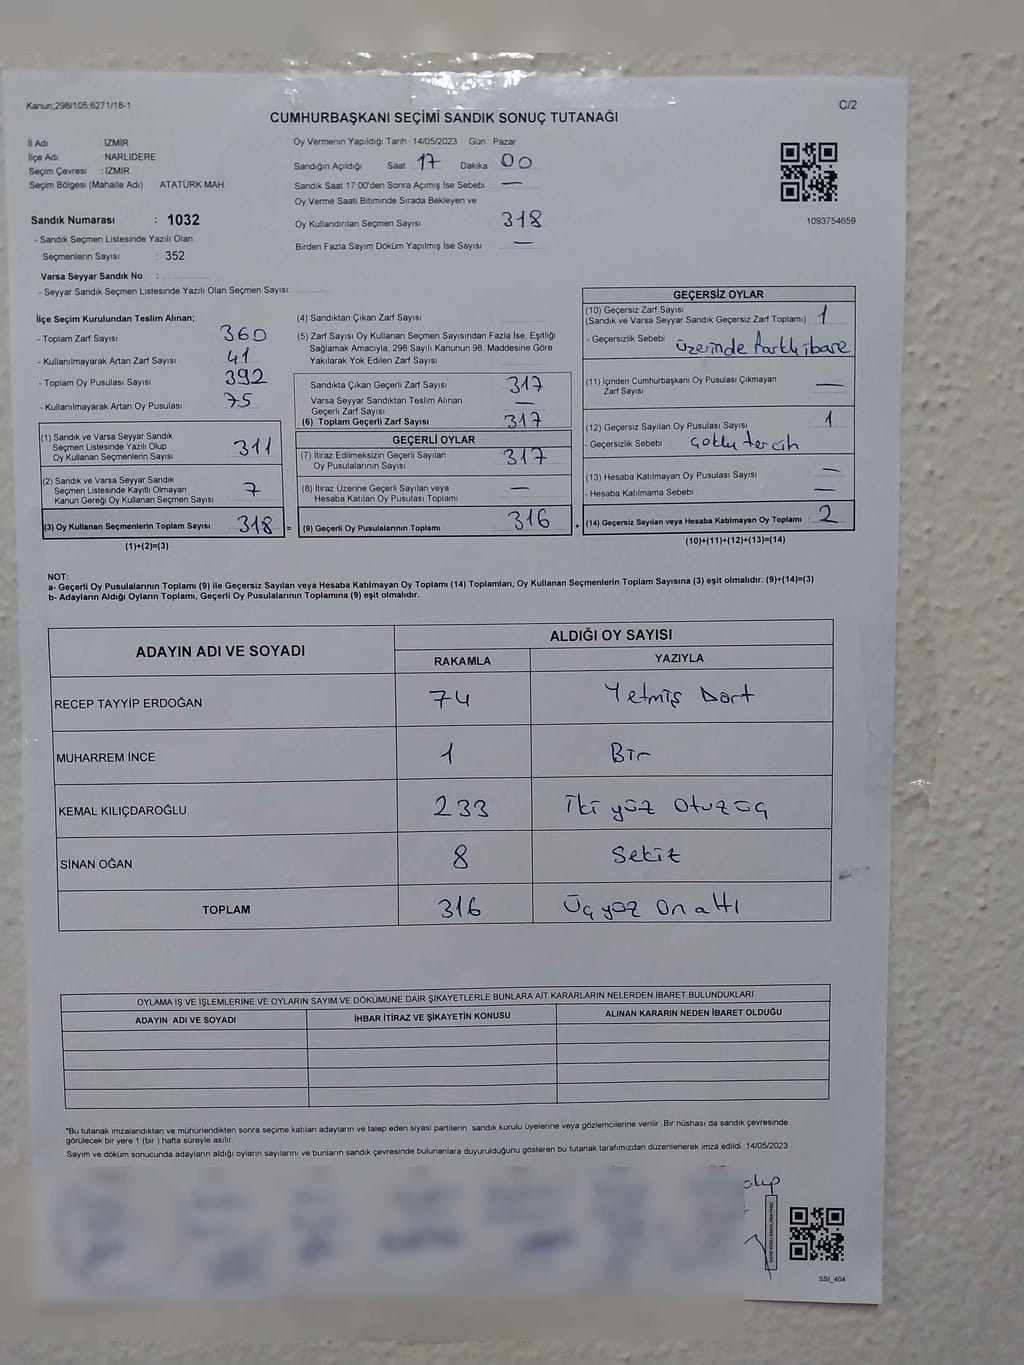 Kanun;298/105;6271/18-1
C/2
CUMHURBAŞKANI SEÇİMİ SANDIK SONUÇ TUTANAĞI
İl Adı : İZMİR
İlçe Adı : NARLIDERE
Seçim Çevresi : İZMİR
Seçim Bölgesi (Mahalle Adı) ATATÜRK MAH.
Sandık Numarası : 1032
- Sandık Seçmen Listesinde Yazılı Olan
Seçmenlerin Sayısı : 352
Varsa Seyyar Sandık No :
- Seyyar Sandık Seçmen Listesinde Yazılı Olan Seçmen Sayısı:
Oy Vermenin Yapıldığı Tarih 14/05/2023 Gün Pazar
Sandığın Açıldığı Saat 17 Dakika 00
Sandık Saat 17:00'den Sonra Açımış İse Sebebi —
Oy Verme Saati Bitiminde Sırada Bekleyen ve
Oy Kullandırılan Seçmen Sayısı 318
Birden Fazla Sayım Döküm Yapılmış İse Sayısı —
1093754659
İlçe Seçim Kurulundan Teslim Alınan;
- Toplam Zarf Sayısı 360
- Kullanılmayarak Artan Zarf Sayısı 41
- Toplam Oy Pusulası Sayısı 392
- Kullanılmayarak Artan Oy Pusulası 75
(1) Sandık ve Varsa Seyyar Sandık
Seçmen Listesinde Yazılı Olup
Oy Kullanan Seçmenlerin Sayısı 311
(2) Sandık ve Varsa Seyyar Sandık
Seçmen Listesinde Kayıtlı Olmayan
Kanun Gereği Oy Kullanan Seçmen Sayısı 7
(3) Oy Kullanan Seçmenlerin Toplam Sayısı 318 =
(1)+(2)=(3)
(4) Sandıktan Çıkan Zarf Sayısı
(5) Zarf Sayısı Oy Kullanan Seçmen Sayısından Fazla İse, Eşitliği
Sağlamak Amacıyla, 298 Sayılı Kanunun 98. Maddesine Göre
Yakılarak Yok Edilen Zarf Sayısı
Sandıkta Çıkan Geçerli Zarf Sayısı 317
Varsa Seyyar Sandıktan Teslim Alınan
Geçerli Zarf Sayısı —
(6) Toplam Geçerli Zarf Sayısı 317
GEÇERLİ OYLAR
(7) İtiraz Edilmeksizin Geçerli Sayılan
Oy Pusulalarının Sayısı 317
(8) İtiraz Üzerine Geçerli Sayılan veya
Hesaba Katılan Oy Pusulası Toplamı —
(9) Geçerli Oy Pusulalarının Toplamı 316 +
GEÇERSİZ OYLAR
(10) Geçersiz Zarf Sayısı
(Sandık ve Varsa Seyyar Sandık Geçersiz Zarf Toplamı) 1
- Geçersizlik Sebebi üzerinde farklı ibare
(11) İçinden Cumhurbaşkanı Oy Pusulası Çıkmayan
Zarf Sayısı —
(12) Geçersiz Sayılan Oy Pusulası Sayısı 1
- Geçersizlik Sebebi Çoklu tercih
(13) Hesaba Katılmayan Oy Pusulası Sayısı —
- Hesaba Katılmama Sebebi —
(14) Geçersiz Sayılan veya Hesaba Katılmayan Oy Toplamı 2
(10)+(11)+(12)+(13)=(14)
NOT:
a- Geçerli Oy Pusulalarının Toplamı (9) ile Geçersiz Sayılan veya Hesaba Katılmayan Oy Toplamı (14) Toplamları, Oy Kullanan Seçmenlerin Toplam Sayısına (3) eşit olmalıdır. (9)+(14)=(3)
b- Adayların Aldığı Oyların Toplamı, Geçerli Oy Pusulalarının Toplamına (9) eşit olmalıdır.
ADAYIN ADI VE SOYADI
ALDIĞI OY SAYISI
RAKAMLA YAZIYLA
RECEP TAYYİP ERDOĞAN 74 Yetmiş Dört
MUHARREM İNCE 1 Bir
KEMAL KILIÇDAROĞLU 233 İki yüz Otuzüç
SİNAN OĞAN 8 Sekiz
TOPLAM 316 Üç yüz On altı
OYLAMA İŞ VE İŞLEMLERİNE VE OYLARIN SAYIM VE DÖKÜMÜNE DAİR ŞİKAYETLERLE BUNLARA AİT KARARLARIN NELERDEN İBARET BULUNDUKLARI
ADAYIN ADI VE SOYADI İHBAR İTİRAZ VE ŞİKAYETİN KONUSU ALINAN KARARIN NEDEN İBARET OLDUĞU
*Bu tutanak imzalandıktan ve mühürlendikten sonra seçime katılan adayların ve talep eden siyasi partilerin sandık kurulu üyelerine veya gözlemcilerine verilir. Bir nüshası da sandık çevresinde
görülecek bir yere 1 (bir ) hafta süreyle asılır.
Sayım ve döküm sonucunda adayların aldığı oyların sayılarını ve bunların sandık çevresinde bulunanlara duyurulduğunu gösteren bu tutanak tarafımızdan düzenlenerek imza edildi. 14/05/2023
SSI_404